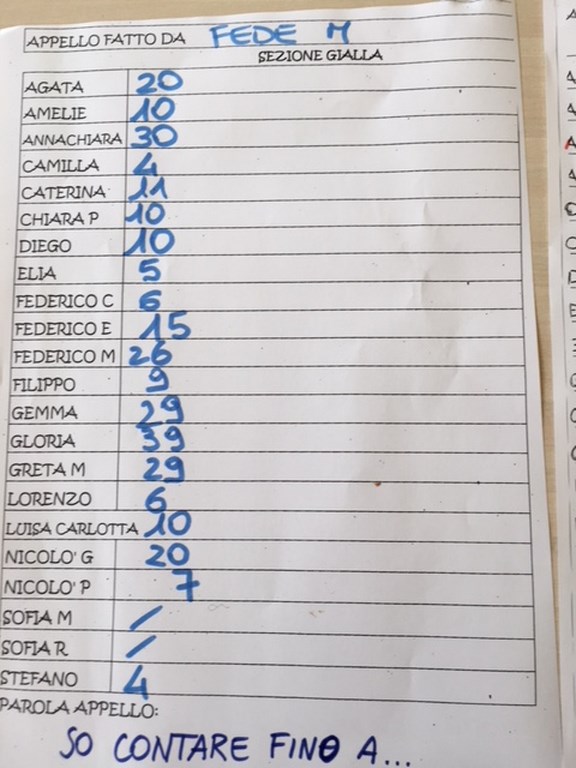 APPELLO FATTO DA FEDE M
SEZIONE GIALLA
AGATA 20
AMELIE 10
ANNACHIARA 30
CAMILLA 4
CATERINA 11
CHIARA P 10
DIEGO 10
ELIA 5
FEDERICO C 6
FEDERICO E 15
FEDERICO M 26
FILIPPO 9
GEMMA 29
GLORIA 39
GRETA M 29
LORENZO 6
LUISA CARLOTTA 10
NICOLO' G 20
NICOLO' P 7
SOFIA M /
SOFIA R /
STEFANO 4
PAROLA APPELLO:
SO CONTARE FINO A...